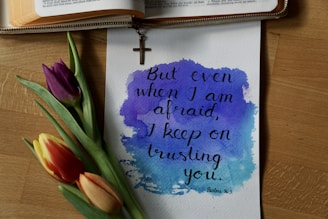 But even
when I am
afraid,
I keep on
trusting
you.